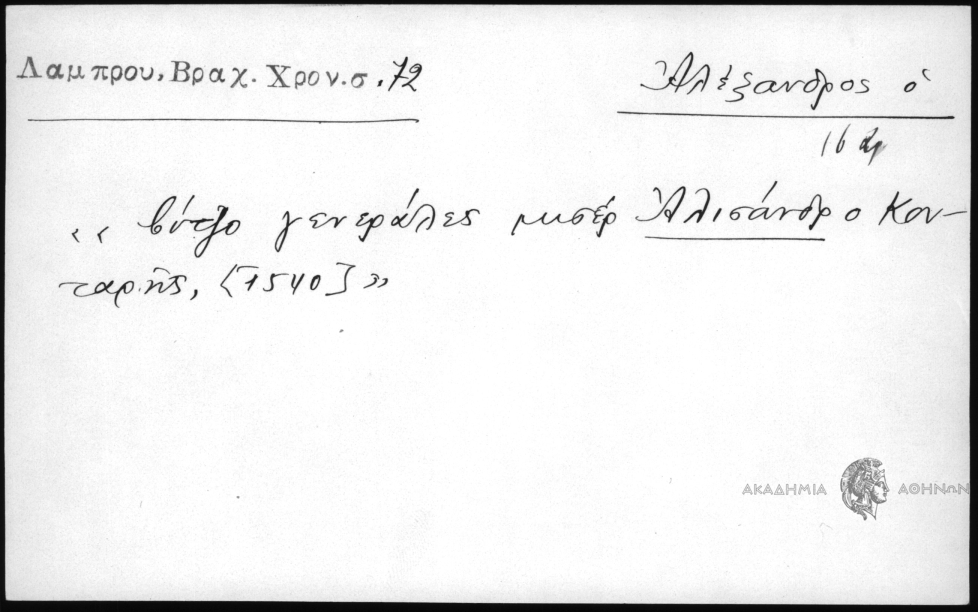 Λαμπρου, Βραχ. Χρον.σ.72
Ἀλέξανδρος ὁ
«βίτζο γενεράλες μισέρ Ἀλισάνδρο Κον-
ταρῆς, [1540]»
ΑΚΑΔΗΜΙΑ ΑΘΗΝΩΝ